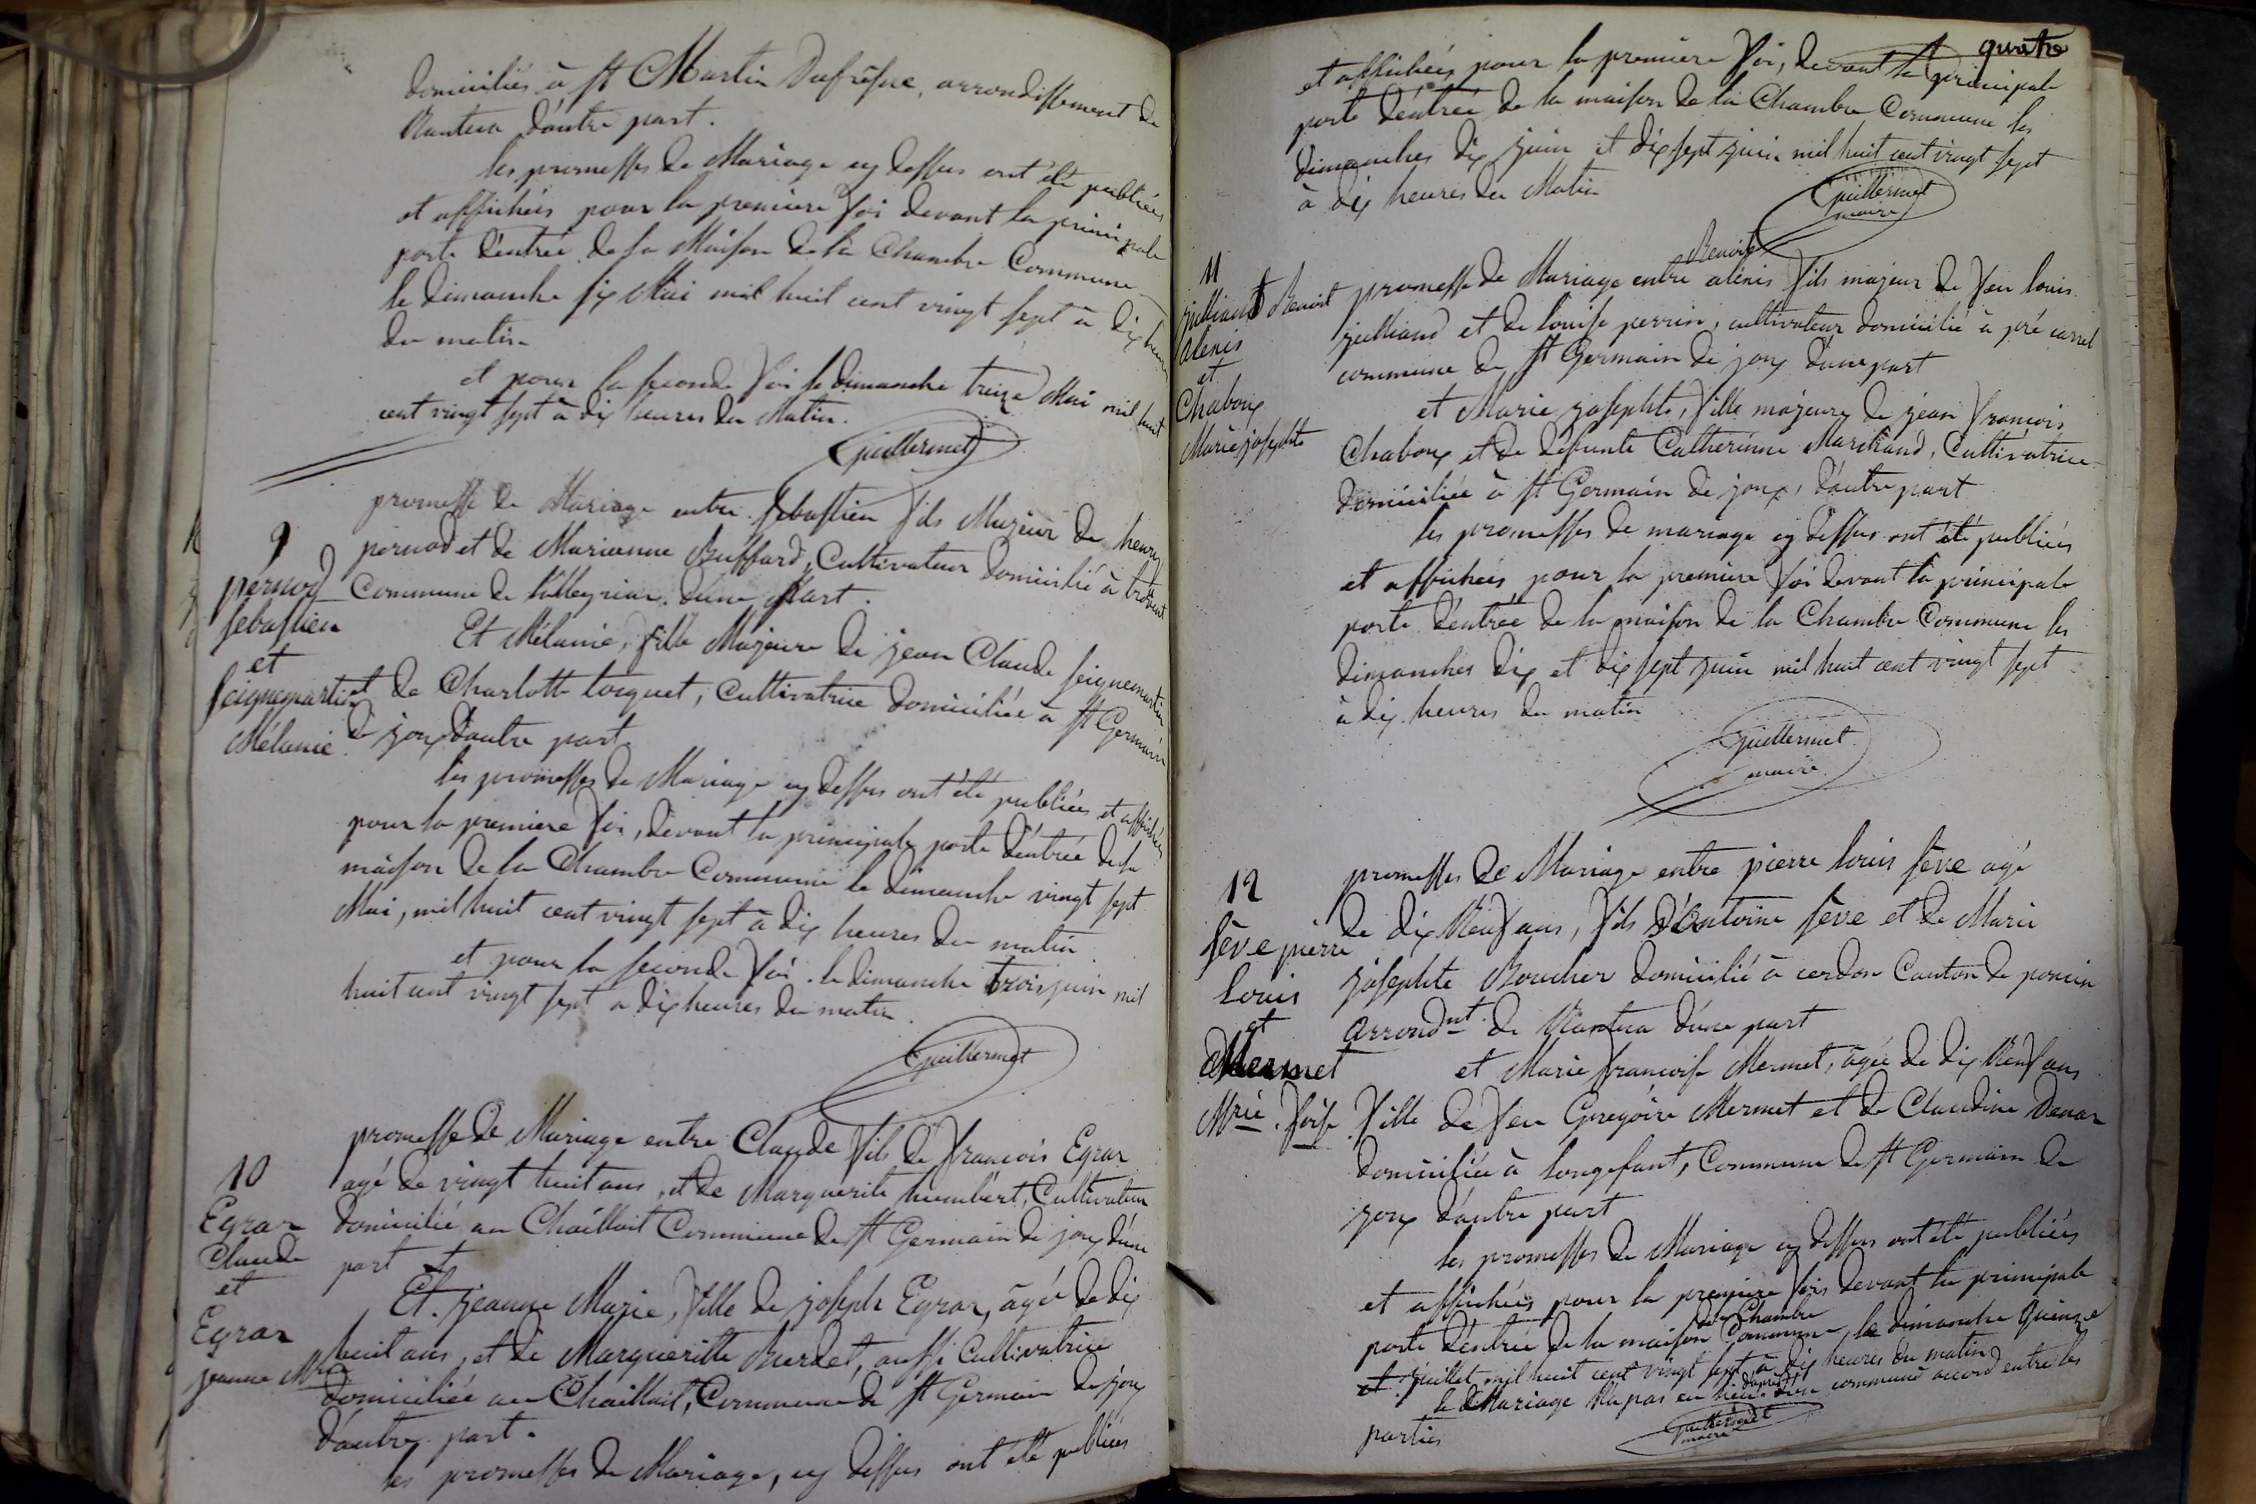 domiciliés à St Martin Dufrêsne, arrondissement de
Nantua d'autre part.
les promesses de Mariage cy dessus ont été publiées
et affichées pour la premiere foi devant la principale
porte d'entrée de la Maison de la Chambre Commune
le dimanche six Mai mil huit cent vingt sept à dix heures
du matin
et pour la seconde foi le dimanche treize Mai mil huit
cent vingt sept à dix heures du Matin.
Guillermet
9
pernod
sebastien
et
seignemartin
Mélanie
promesse de Mariage entre sebastien fils Majeur de henry
pernod et de Marianne Buffard, Cultivateur domicilié à
Commune de d'une part.
Et Mélanie, fille Majeure de jean Claude seignemartin
et de Charlotte tocquet, Cultivatrice domiciliée à St Germain
de joux d'autre part
les promesses de Mariage cy dessus ont été publiées et affichées
pour la premiere foi, devant la principale porte d'entrée de la
maison de la Chambre Commune le dimanche vingt sept
Mai, mil huit cent vingt sept à dix heures du matin
et pour la seconde foi le dimanche trois juin mil
huit cent vingt sept a dix heures du matin.
Guillermet
10
Egraz
Claude
et
Egraz
jeanne Mrie
promesse de Mariage entre Claude fils de françois Egraz
agé de vingt huit ans, et de Marguerite humbert, Cultivateur
domicilié au Chaillait Commune de St Germain de joux d'une
part
Et jeanne Marie, fille de joseph Egraz, âgée de dix
huit ans, et de Margueritte Burdet, aussi Cultivatrice
domiciliée au Chaillait, Commune de St Germain de joux
d'autre part.
les promesses de Mariage, cy dessus ont été publiées
quatre
et affichées pour la premiere foi, devant la principale
porte d'entrée de la maison de la Chambre Commune les
dimanches dix juin et dix sept juin mil huit cent vingt sept
à dix heures du Matin
Guillermet
maire
11
julliand Benoit
alexis
et
Chaboux
Marie josephte
Benoit
promesse de Mariage entre alexis fils majeur de feu louis
julliand et de louise perrin, cultivateur domicilié à pré carrel
commune de St Germain de joux d'une part
et Marie josephte, fille majeure de jean françois
Chaboux et de défunte Catherinne Marchand, Cultivatrice
domiciliée à St Germain de joux, d'autre part
les promesses de mariage cy dessus ont été publiées
et affichées pour la premiere foi devant la principale
porte d'entrée de la maison de la Chambre Commune les
dimanches dix et dix sept juin mil huit cent vingt sept
à dix heures du matin
Guillermet
maire
12
sève pierre
louis
et
Mermet
Mrie. foise
promesses de Mariage entre pierre louis sève agé
de dix Neuf ans, fils d'antoine sève et de Marie
josephte Boucher domicilié à cerdon Canton de poncin
arrondnt de Nantua d'une part
et Marie françoise Mermet, âgée de dix Neuf ans
fille de feu Gregoire Mermet et de Claudine
domiciliée à longefant, Commune de St Germain de
joux d'autre part
les promesses de Mariage cy dessus ont été publiées
et affichées pour la premiere fois devant la principale
de la Chambre
porte d'entrée de la maison Commune le dimanche Quinze
juillet mil huit cent vingt sept à dix heures du matin
le Mariage n'a pas eu lieu d'après d'un commun accord entre les
parties
Guillermet
maire